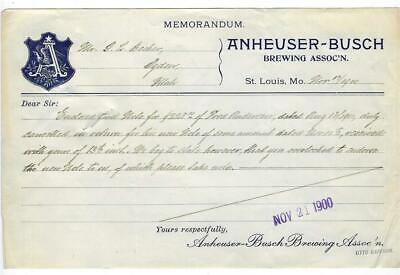 MEMORANDUM.
A
ANHEUSER-BUSCH
BREWING ASSOC'N.
Mr. G. L. Becker,
Ogden,
Utah
St. Louis, Mo. Nov 17 1900
Dear Sir:
Enclosed find Note for of Andersen, dated Aug duly
cancelled in return for his new Note of same amount dated received
with yours of 13th inst. We beg to state, however, that you overlooked to endorse
the new Note to us, of which please take note.
NOV 21 1900
Yours respectfully,
Anheuser-Busch Brewing Assoc'n.